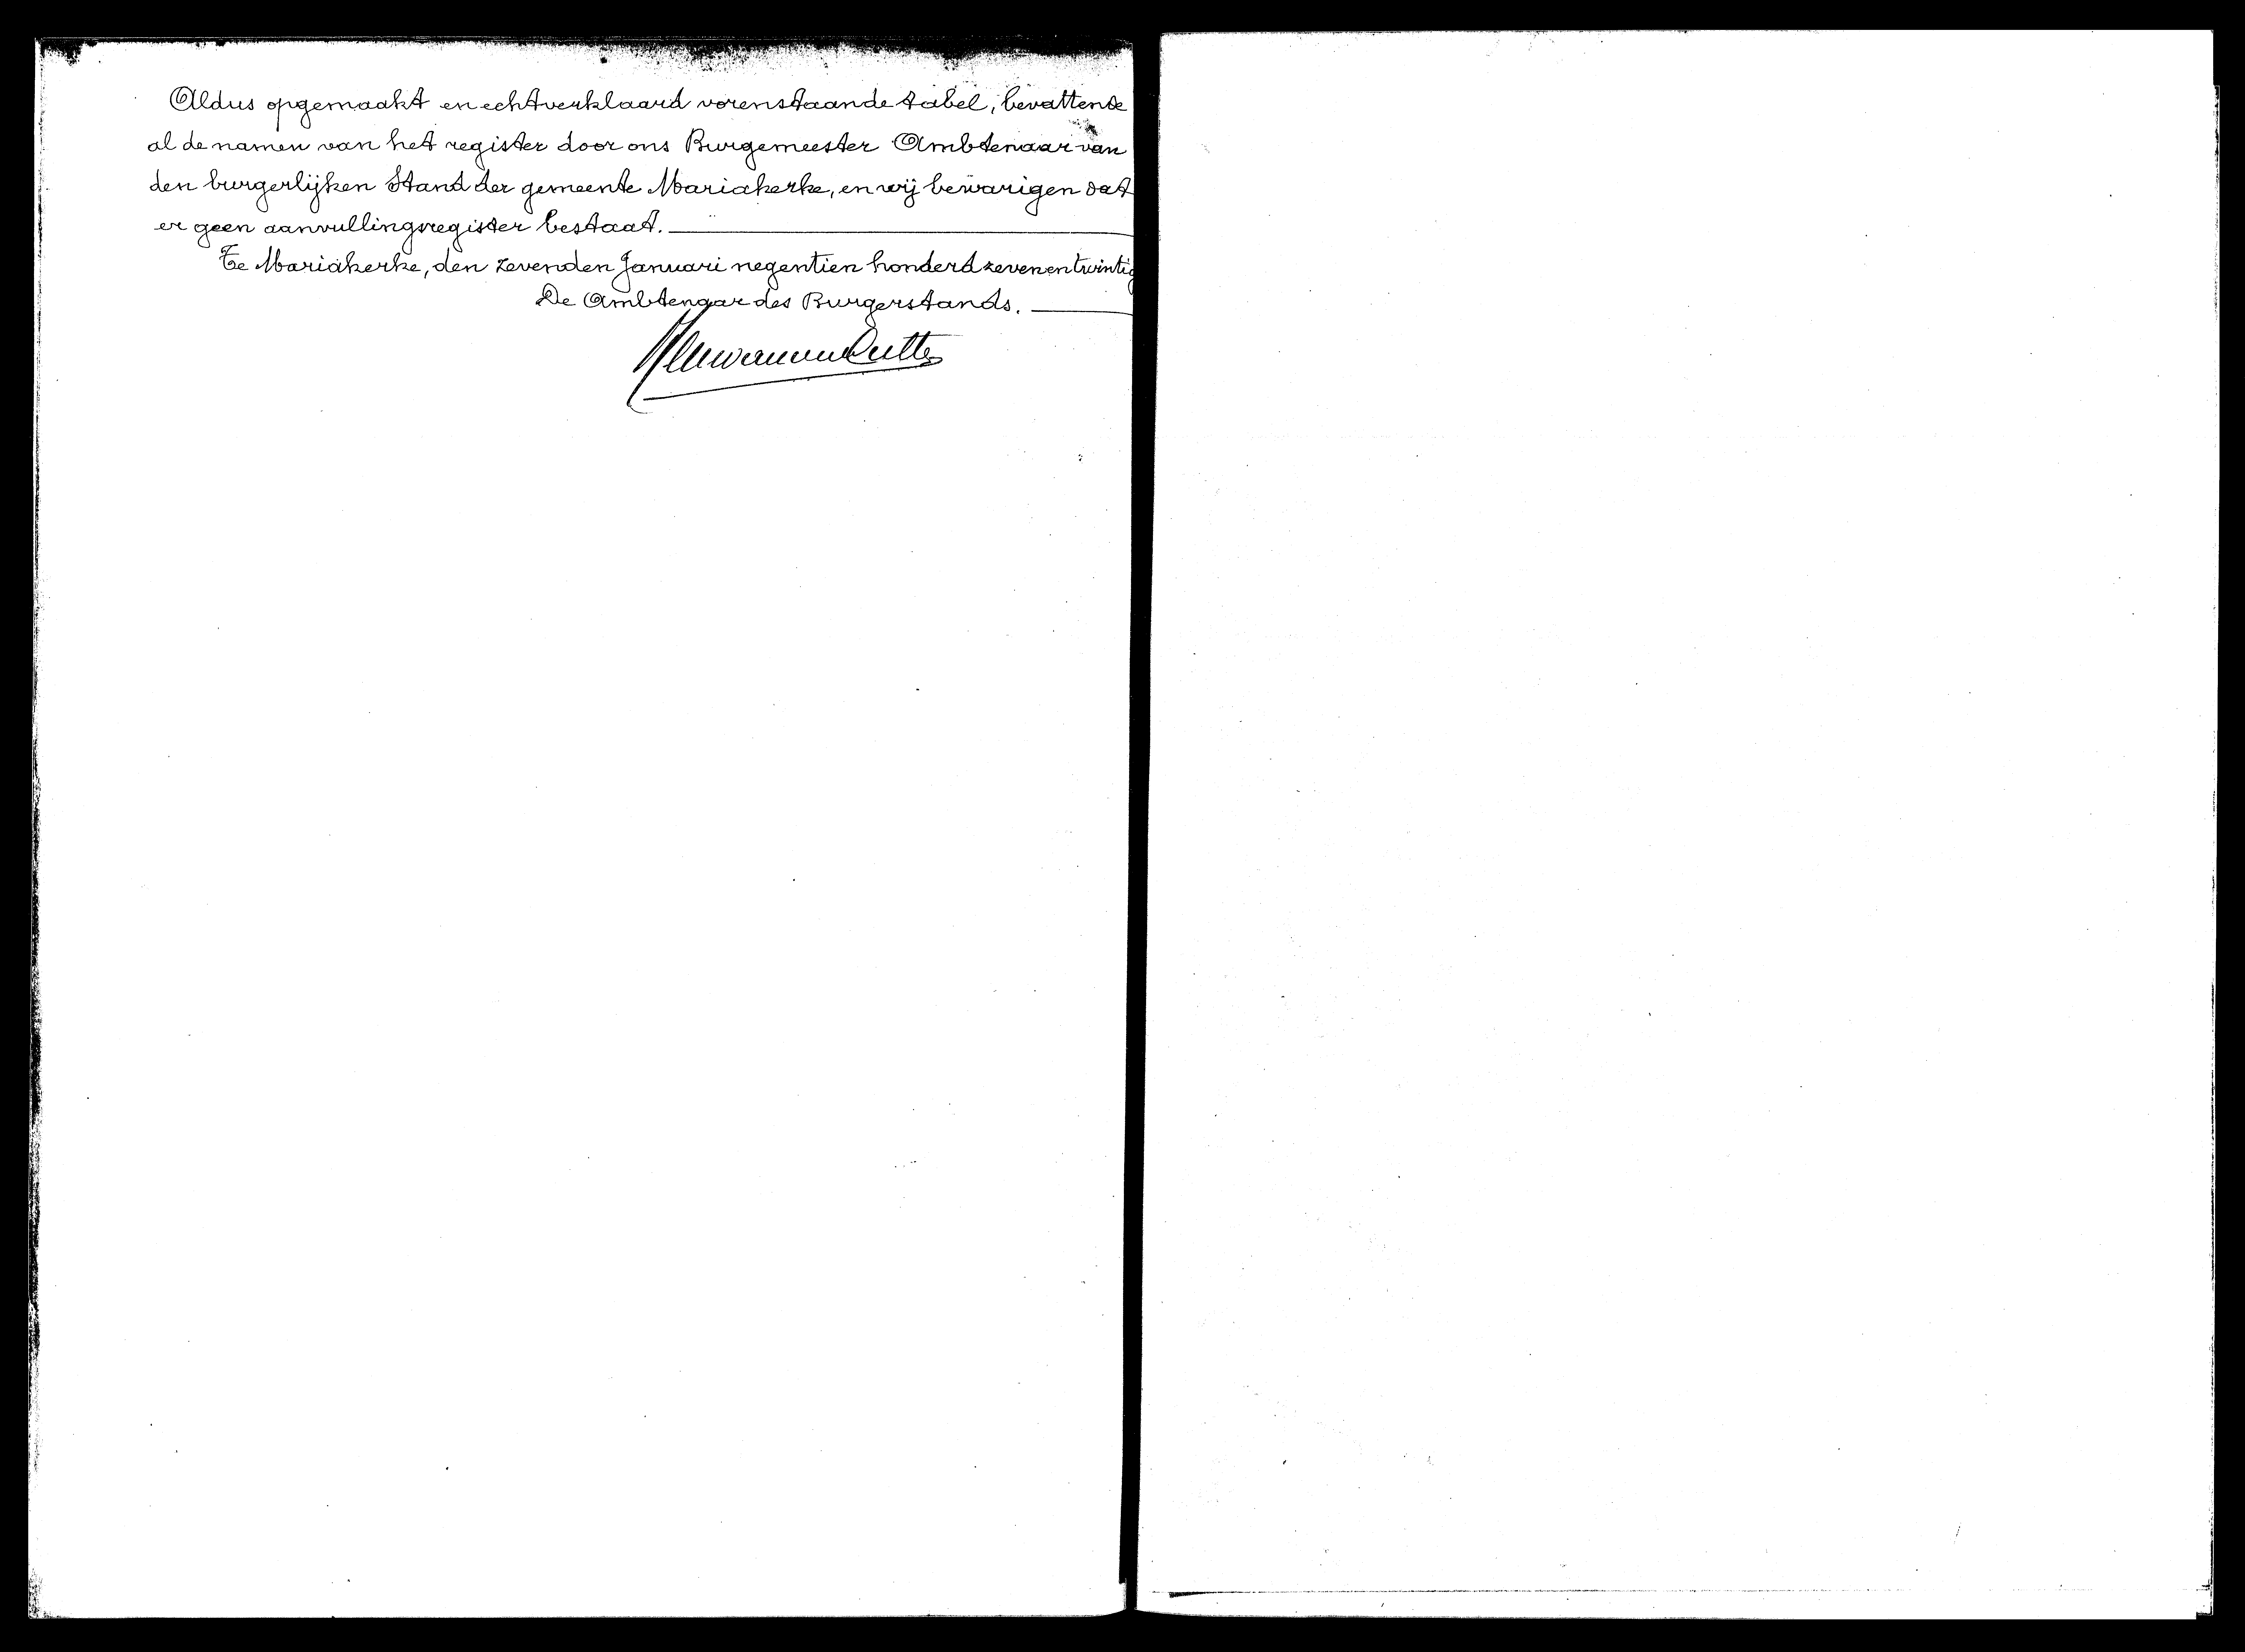 Aldus opgemaakt en echtverklaard vorenstaande tabel, bevattende
al de namen van het register door ons Burgemeester Ambtenaar van
den burgerlijken Stand der gemeente Mariakerke, en wij bewarigen dat
er geen aanvullingsregister bestaat.
Te Mariakerke, den zevenden Januari negentien honderd zevenentwintig
De Ambtenaar des Burgerstands.